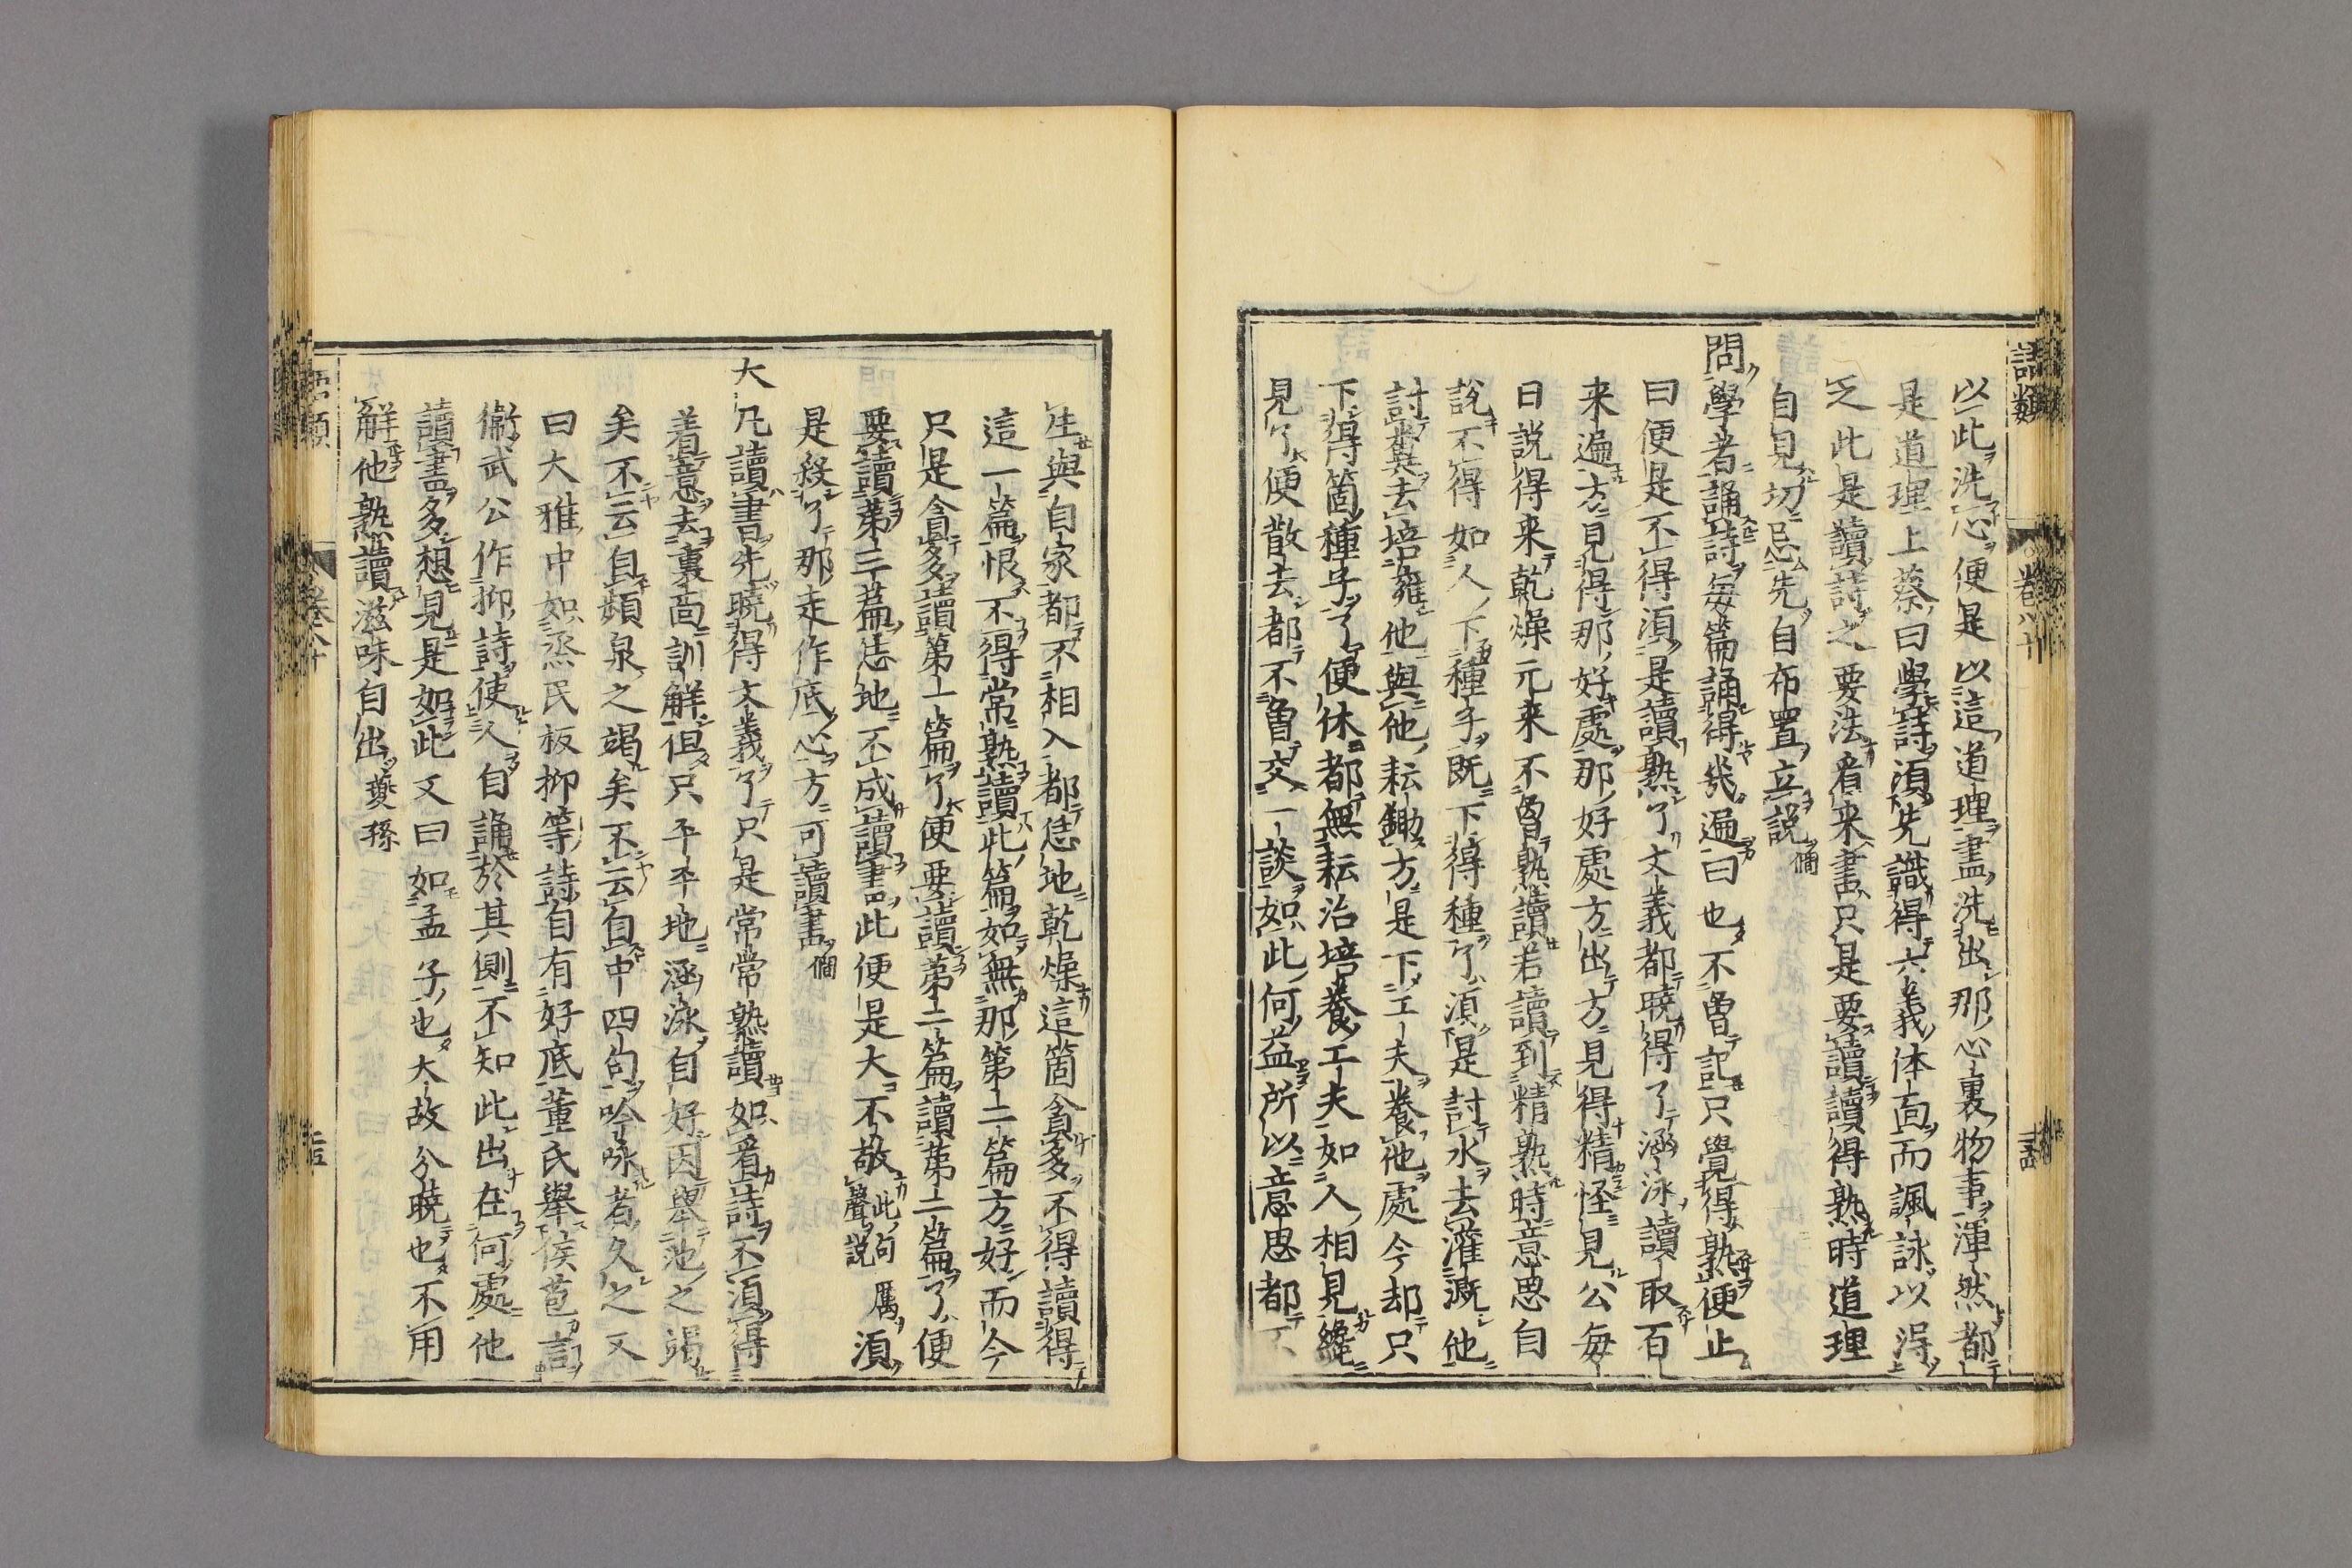 語類
卷八十
以此洗心便是以這道理盡洗出那心裏物事渾然都
是道理上蔡曰學詩須先識得六義体面而諷詠以得
之此是讀詩之要法看来書只是要讀讀得熟時道理
自見切忌先自布置立說 僩
問學者誦詩每篇誦得幾遍曰也不曾記只覺得熟便止
曰便是不得須是讀熟了文義都曉得了涵泳讀取百
来遍方見得那好處那好處方出方見得精怪見公每
日說得来乾燥元来不曾熟讀若讀到精熟時意思自
說不得如人下種子既下得種了須是討水去灌漑他
討糞去培擁他與他耘鋤方是下工夫養他處今却只
下得箇種子了便休都無耘治培養工夫如人相見纔
見了便散去都不曾交一談如此何益所以意思都不
生與自家都不相入都恁地乾燥這箇貪多不得讀得
這一篇恨不得常熟讀此篇如無那第二篇方好而今
只是貪多讀第一篇了便要讀第二篇讀第二篇了便
要讀第三篇恁地不成讀書此便是大不敬 此句厲聲說 須
是殺了那走作底心方可讀書 僩
大凡讀書先曉得文義了只是常常熟讀如看詩不須得
着意去裏面訓解但只平平地涵泳自好因舉池之竭
矣不云自頻泉之竭矣不云自中四句吟咏者久之又
曰大雅中如烝民板抑等詩自有好底董氏舉侯苞言
衞武公作抑詩使人自誦於其側不知此出在何處他
讀書多想見是如此又曰如孟子也大故分曉也不用
解他熟讀滋味自出 夔孫
語類
卷八十